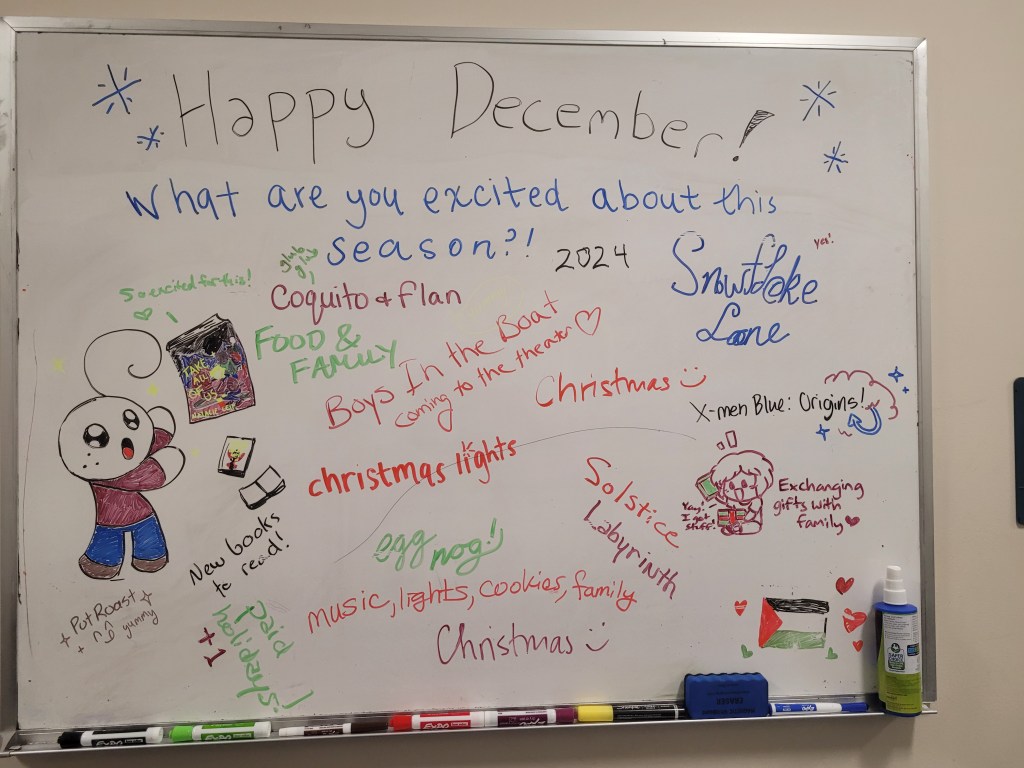 Happy December!
What are you excited about this
season?!
2024
Snowflake
Lane
yes!
So excited for this!
Coquito & Flan
FOOD &
FAMILY
Boys In the Boat
coming to the theater
Christmas
X-men Blue: Origins!
christmas lights
Solstice
Labyrinth
Yay!
I got
stuff!
Exchanging
gifts with
family
New books
to read!
egg
nog!
music, lights, cookies, family
Christmas
Pot Roast
yummy
Paid
holidays!
+1